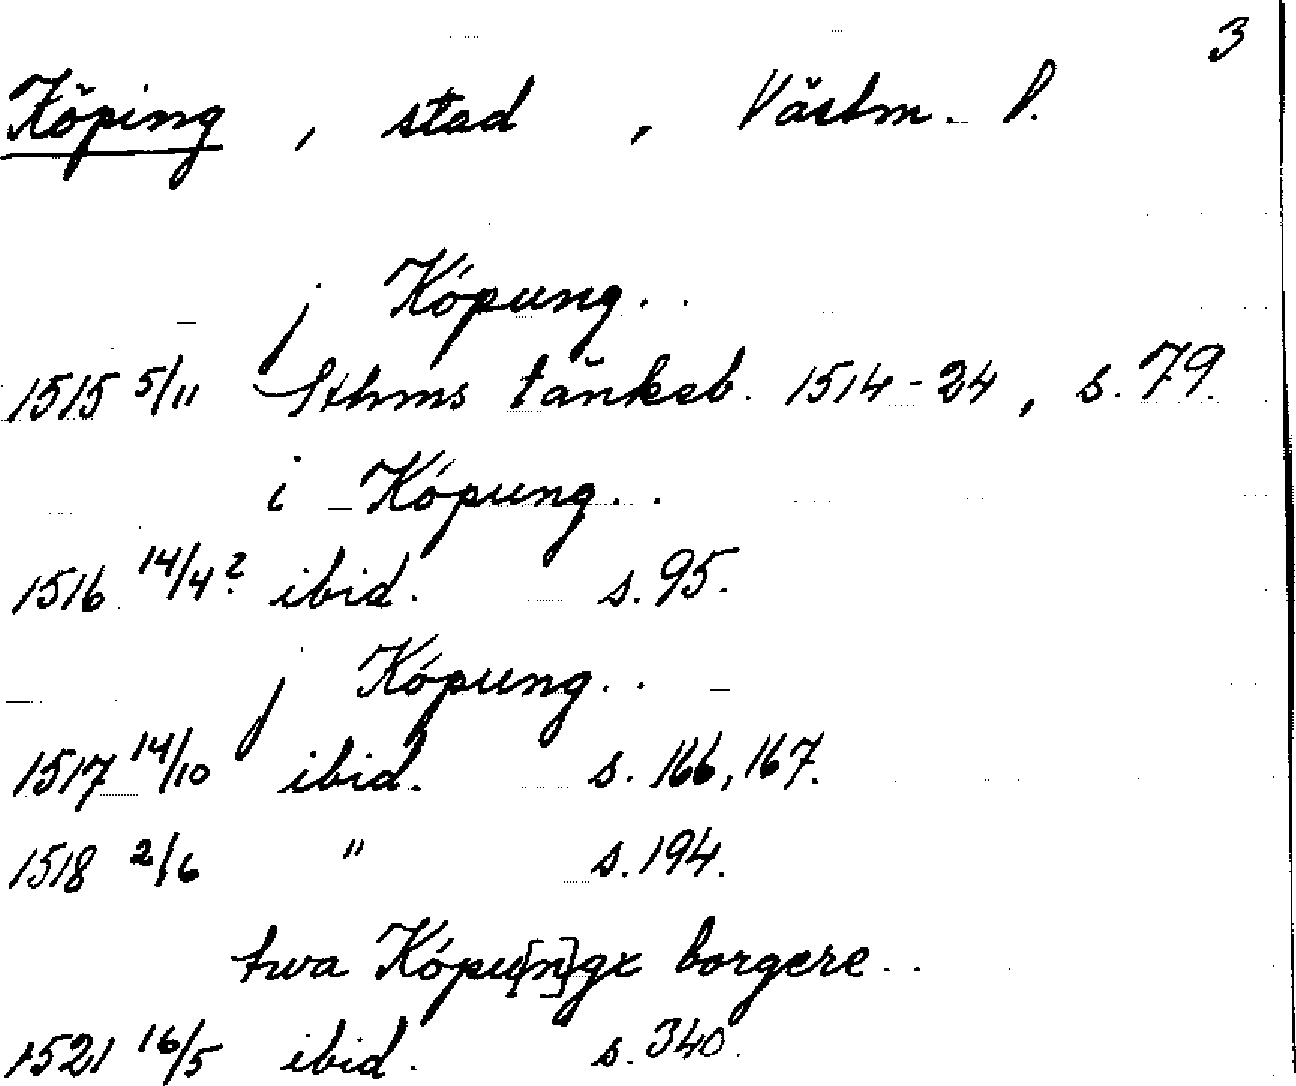 3
Köping, stad, Västm. l.
j Kópung..
1515 5/11 Sthms tänkeb. 1514-24, s. 79.
i Kópung..
1516 14/4? ibid. s. 95.
j Kópung..
1517 14/10 ibid. s. 166, 167.
1518 2/6 " s. 194.
twa Kópu[n]gx borgere..
1521 16/5 ibid. s. 340.